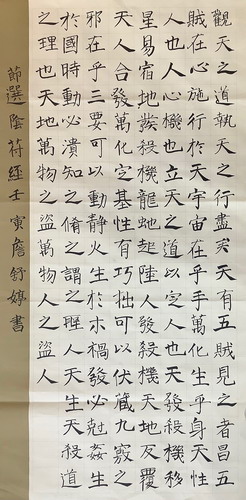 觀天之道執天之行盡矣天有五賊見之者昌五
賊在心施行於天宇宙在乎手萬化生乎身天性
人也人心機也立天之道以定人也天發殺機移
星易宿地發殺機龍蛇起陸人發殺機天地反覆
天人合發萬化定基性有巧拙可以伏藏九竅之
邪在乎三要可以動靜火生於木禍發必尅姦生
於國時動必潰知之脩謂之聖人天生天殺道
之理也天地萬物之盜萬物人之盜人
節選陰符經壬寅詹舒婷書